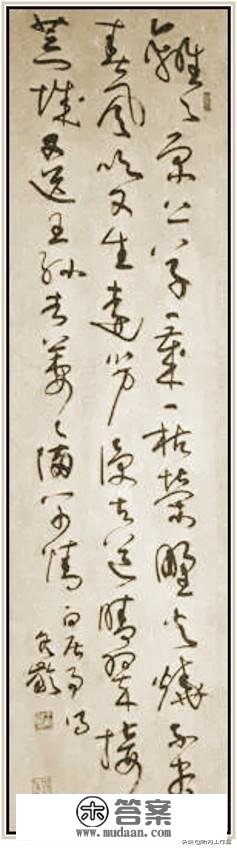 離〻原上草一歲一枯榮野火燒不盡
春風吹又生遠芳侵古道晴翠接
荒城又送王孫去萋〻滿別情 白居易詩
答案
www.mudaan.com